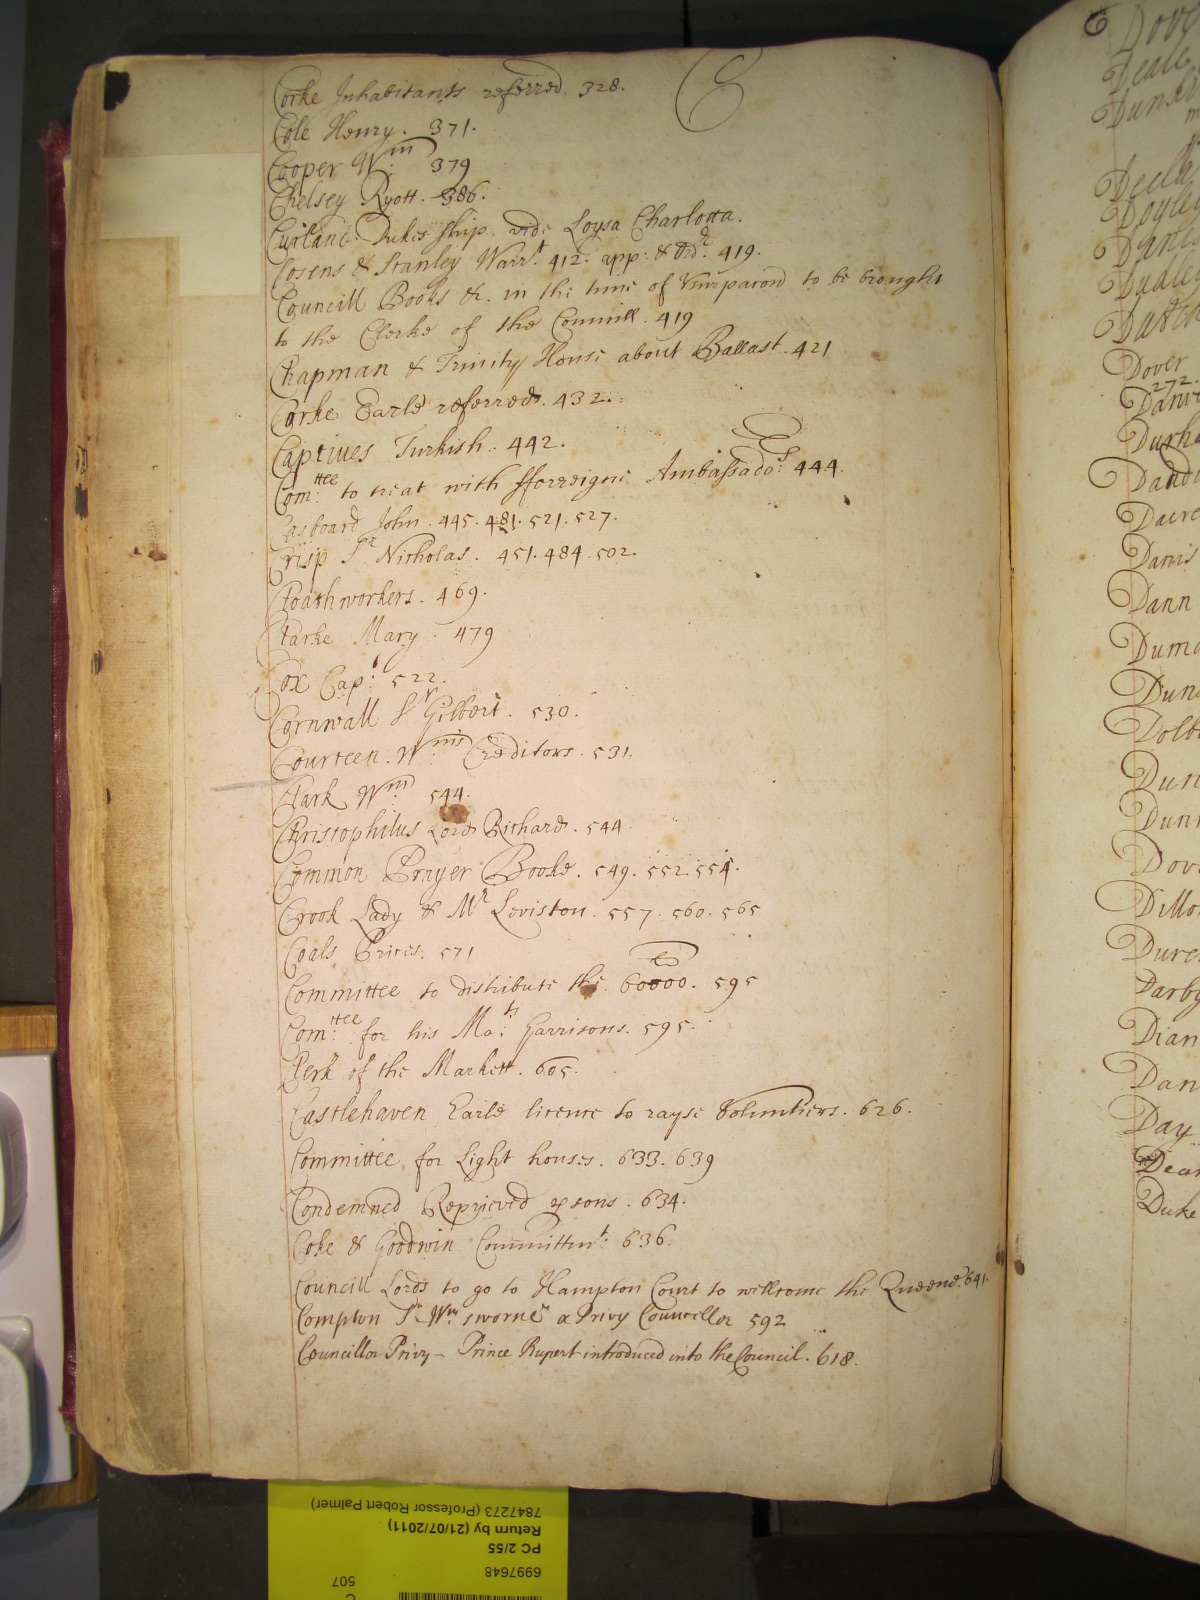 C
Corke Inhabitants referred. 328.
Cole Henry. 371.
Cooper Wm: 379
Chelsey Ryott. 386.
Curland Dukes ship. vide Loysa Charlotta.
Cosens & Stanley Warrt. 412. app: & Ordr. 419.
Councill Books &c. in the time of Vsurpacon to be brought
to the Clerke of the Councill. 419
Chapman & Trinity House about Ballast. 421
Corke Earle referred. 432.
Captives Turkish. 442.
Com:ttee to treat with fforreigne Ambassado:rs 444.
Casboard John. 445. 481. 521. 527.
Crisp Sr Nicholas. 451. 484. 502.
Cloathworkers. 469.
Clarke Mary. 479
Cox Cap:t 522.
Cornwall Sr Gilbert. 530.
Courteen. Wms Creditors. 531.
Clark Wm: 544.
Christophilus Lord Richard. 544.
Common Prayer Booke. 549. 552. 554.
Crook Lady & Mr Leviston. 557. 560. 565
Coals Prices. 571
Committee to distribute the 60000. 595
Com:ttee for his Ma:ts Garrisons. 595.
Clerk of the Markett. 605.
Castlehaven Earle licence to rayse Voluntiers. 626.
Committee for Light houses. 633. 639
Condemned Reprieved psons. 634.
Coke & Goodwin Committmt: 636.
Councill Lords to go to Hampton Court to wellcome the Queene. 641.
Compton Sr Wm: sworne a Privy Councellor 592
Councillor Privy - Prince Rupert introduced into the Council. 618.
Dover
272.
Dann
Day
Duke
7847273 (Professor Robert Palmer)
Return by (21/07/2011)
PC 2/55
6997648
507